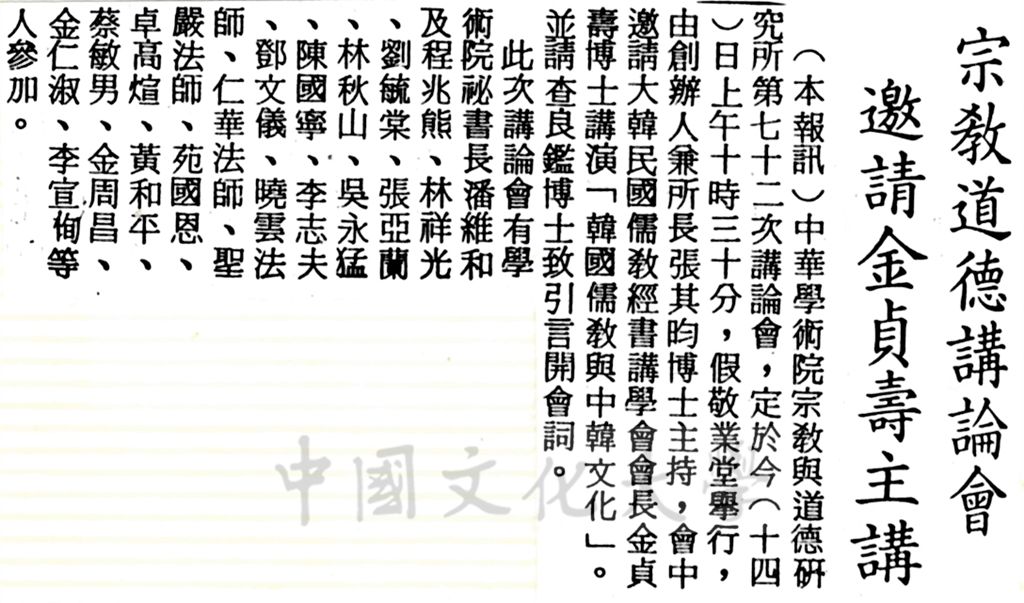 宗教道德講論會
邀請金貞壽主講
（本報訊）中華學術院宗教與道德研
究所第七十二次講論會，定於今（十四
）日上午十時三十分，假敬業堂舉行，
由創辦人兼所長張其昀博士主持，會中
邀請大韓民國儒教經書講學會會長金貞
壽博士講演「韓國儒教與中韓文化」。
並請查良鑑博士致引言開會詞。
此次講論會有學
術院祕書長潘維和
及程兆熊、林祥光
、劉毓棠、張亞蘭
、林秋山、吳永猛
、陳國寧、李志夫
、鄧文儀、曉雲法
師、仁華法師、聖
嚴法師、苑國恩、
卓高煊、黃和平、
蔡敏男、金周昌、
金仁淑、李宣恂等
人參加。
中國文化大學